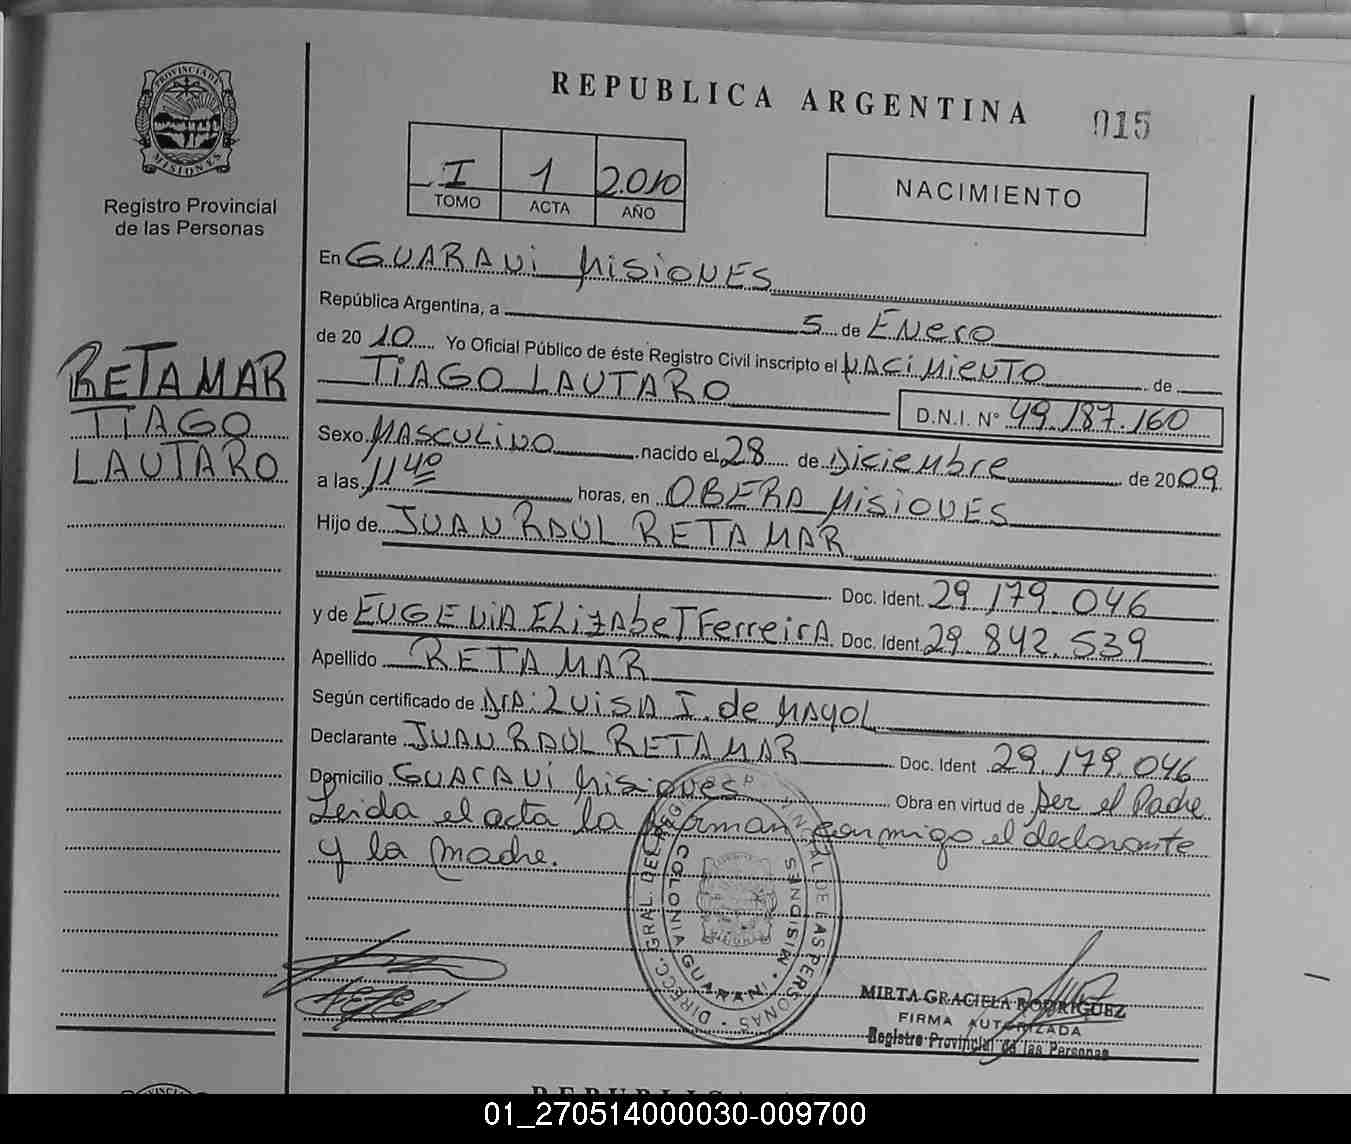 PROVINCIA DE
MISIONES
Registro Provincial
de las Personas
RETAMAR
TIAGO
LAUTARO
REPUBLICA ARGENTINA
015
I 1 2.010
TOMO ACTA AÑO
NACIMIENTO
En GUARANI MISIONES
República Argentina, a 5 de ENERO
de 20 10 Yo Oficial Público de éste Registro Civil inscripto el NACIMIENTO de
TIAGO LAUTARO
D.N.I. N° 49.187.160
Sexo MASCULINO nacido el 28 de Diciembre de 2009
a las 11 40 horas, en OBERA MISIONES
Hijo de JUAN RAÚL RETAMAR
Doc. Ident. 29.179.046
y de EUGENIA ELIZABET FERREIRA Doc. Ident. 29.842.539
Apellido RETAMAR
Según certificado de DRA: LUISA I. de MAYOL
Declarante JUAN RAÚL RETAMAR Doc. Ident 29.179.046
Domicilio GUARANI Misiones Obra en virtud de ser el Padre
Leida el acta la firman conmigo el declarante
y la madre.
DIRECC. GRAL. DEL REG. PROVINCIAL DE LAS PERSONAS
COLONIA GUARANI • MISIONES
MIRTA GRACIELA RODRIGUEZ
FIRMA AUTORIZADA
Registro Provincial de las Personas
01_270514000030-009700